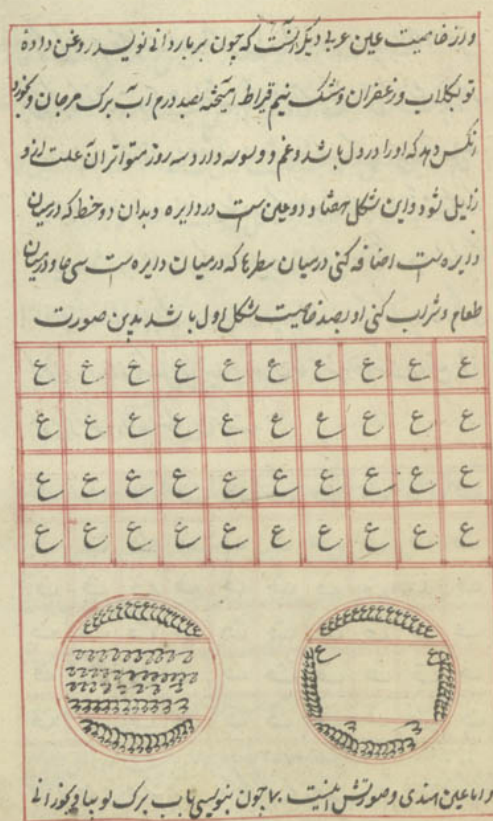 و از خاصیت عین عربی دیگر آنست که چون بر بار دانی نویسد روغن داده
تو بکلاب و زعفران و مشک نیم قیراط امیخته بصد درم آب برک مرجان و بخورد
انکس دهد که او را در دل باشد و غم و وسوسه دارد سه روز متواتر آن علت از و
زایل شود و این شکل هفتاد و دو عین ست در دایره و بدان دو خط که درمیان
دایره ست اضافه کنی درمیان سطرها که درمیان دایره ست سی و درمیان
طعام و شراب کنی او بصد خاصیت شکل اول باشد بدین صورت
ع ع ع ع ع ع ع ع ع ع
ع ع ع ع ع ع ع ع ع ع
ع ع ع ع ع ع ع ع ع ع
ع ع ع ع ع ع ع ع ع ع
و اما عین هندی و صورتش اینست ۷۰ چون بنویسی بآب برک لوبیا و بخورانی